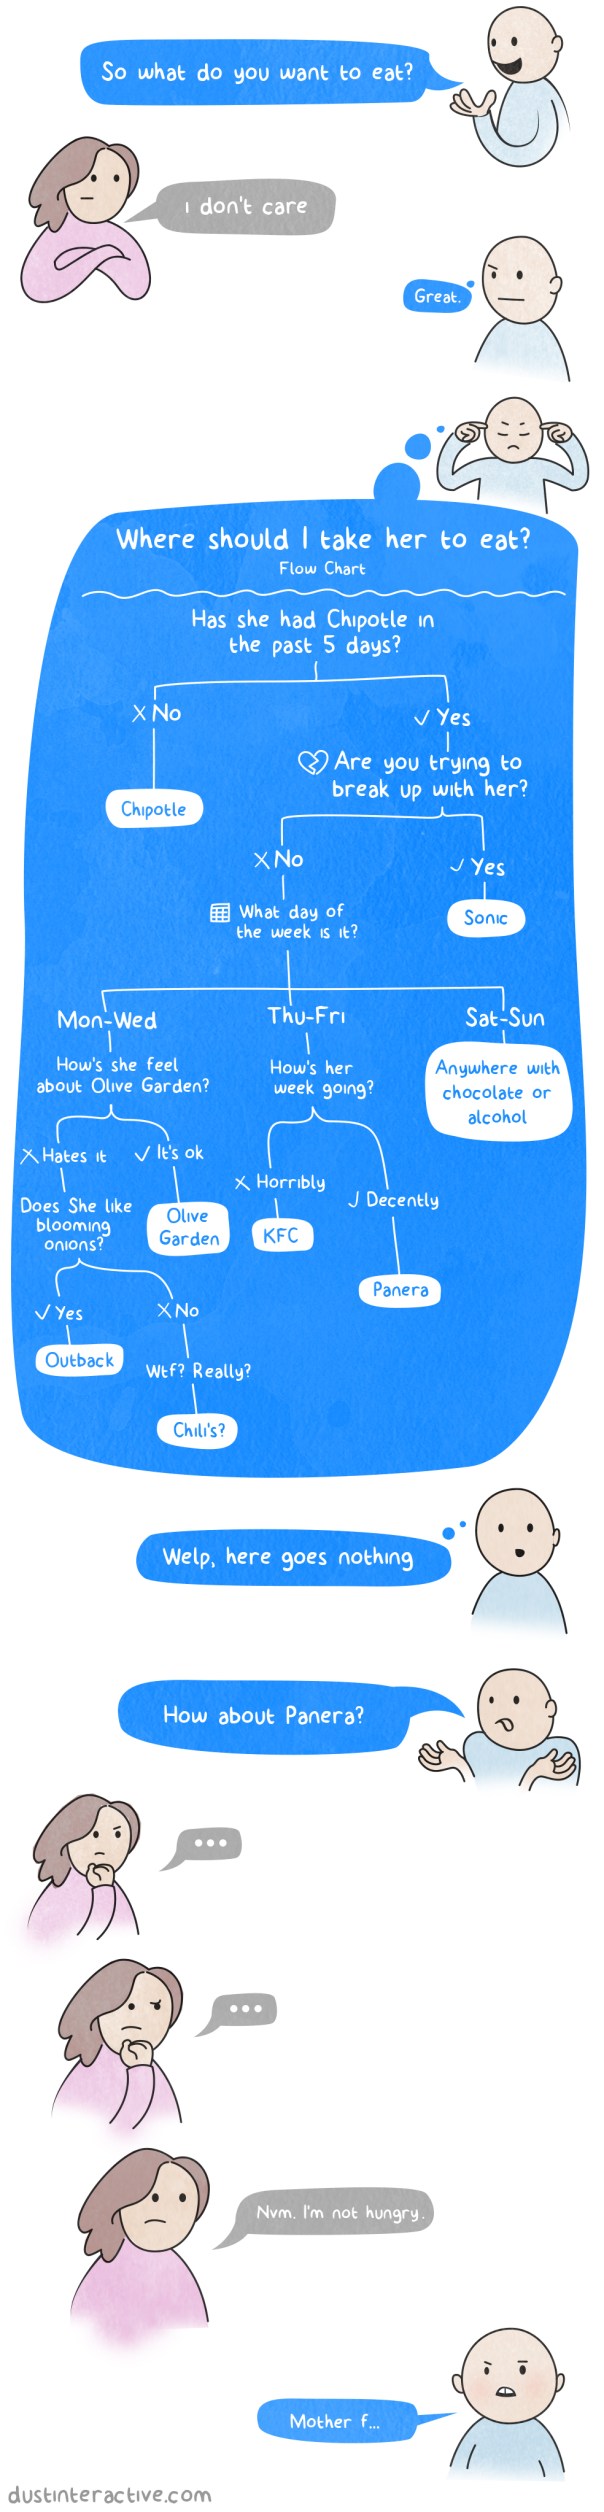 So what do you want to eat?
I don't care
Great.
Where should I take her to eat?
Flow Chart
Has she had Chipotle in
the past 5 days?
No
Yes
Chipotle
Are you trying to
break up with her?
No
Yes
What day of
the week is it?
Sonic
Mon-Wed
Thu-Fri
Sat-Sun
How's she feel
about Olive Garden?
How's her
week going?
Anywhere with
chocolate or
alcohol
Hates it
It's ok
Horribly
Decently
Does She like
blooming
onions?
Olive
Garden
KFC
Panera
Yes
No
Outback
Wtf? Really?
Chili's?
Welp, here goes nothing
How about Panera?
...
...
Nvm. I'm not hungry.
Mother f...
dustinteractive.com